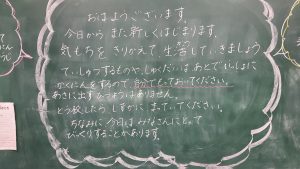 おはようございます。
今日からまた新しくはじまります。
気もちをきりかえて生活していきましょう
ていしゅつするものや、しゅくだいは あとでいっしょに
かくにんをするので、自分でとっておいてください。
あさに出すひつようはありません。
とう校したら しずかに まっていてください。
ちなみに今日は みなさんにとって
びっくりすることがあります。